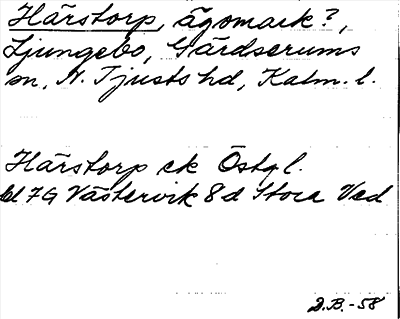 Härstorp, ägomark?,
Ljungebo, Gärdserums
sn, N. Tjusts hd, Kalm. l.
Härstorp ek Östgl.
bl 7G Västervik 8d Stora Ved
D.B.-58